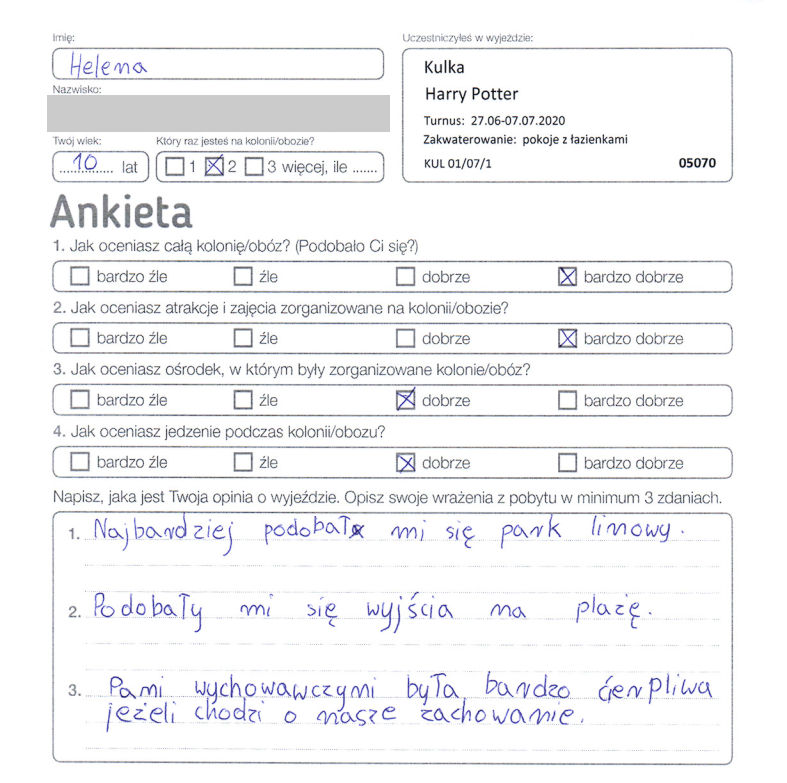 Imię:
Helena
Nazwisko:
Twój wiek:
10 lat
Który raz jesteś na kolonii/obozie?
1 2 3 więcej, ile .......
Uczestniczyłeś w wyjeździe:
Kulka
Harry Potter
Turnus: 27.06-07.07.2020
Zakwaterowanie: pokoje z łazienkami
KUL 01/07/1 05070
Ankieta
1. Jak oceniasz całą kolonię/obóz? (Podobało Ci się?)
bardzo źle źle dobrze bardzo dobrze
2. Jak oceniasz atrakcje i zajęcia zorganizowane na kolonii/obozie?
bardzo źle źle dobrze bardzo dobrze
3. Jak oceniasz ośrodek, w którym były zorganizowane kolonie/obóz?
bardzo źle źle dobrze bardzo dobrze
4. Jak oceniasz jedzenie podczas kolonii/obozu?
bardzo źle źle dobrze bardzo dobrze
Napisz, jaka jest Twoja opinia o wyjeździe. Opisz swoje wrażenia z pobytu w minimum 3 zdaniach.
1. Najbardziej podobał mi się park linowy.
2. Podobały mi się wyjścia na plażę.
3. Pani wychowawczyni była bardzo ćierpliwa
jeżeli chodzi o nasze zachowanie.